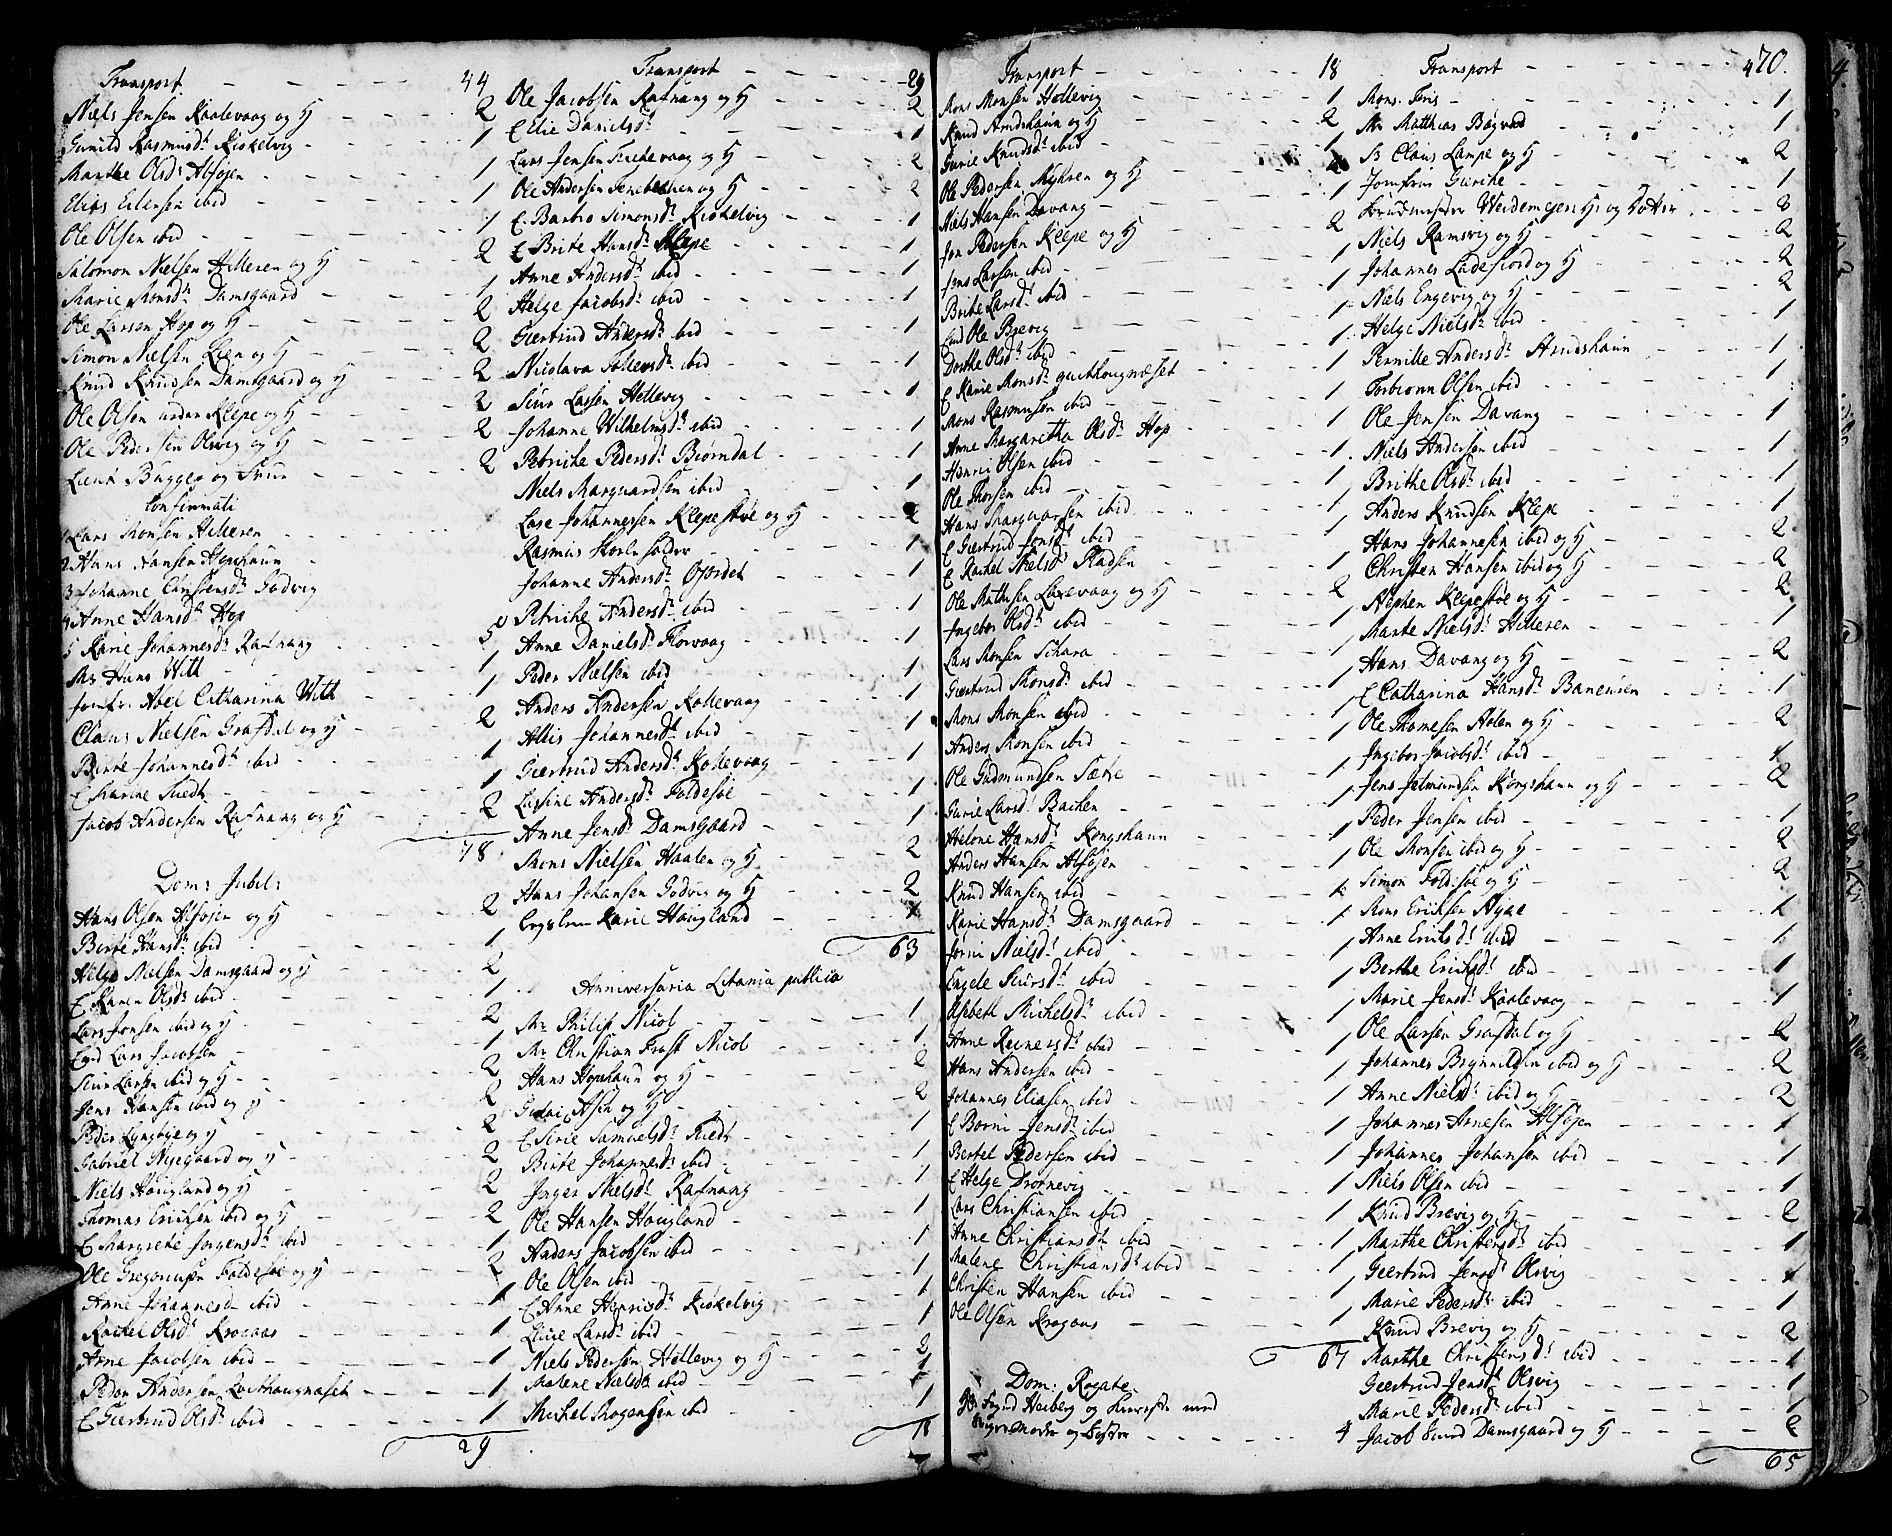 Transport 44
Niels Jensen Kaalevaag og H 2
Gunild Rasmusdr Kiskelvig 1
Marthe Olsdr Alføjen 1
Elias Eilersen ibid 1
Ole Olsen ibid 1
Salomon Nielsen Hilleren og H 2
Marie Monsdr Damsgaard 1
Ole Larsen Hop og H 2
Simon Nielsen Lien og H 2
Knud Knudsen Damsgaard og H 2
Ole Olsen Klepe og H 2
Ole Pedersen Olsvig og H 2
Lieut Bugge og Frue 2
Confirmati
1 Lars Monsen Hilleren
2 Hans Hansen Hopshaun
3 Johanne Carstensdr Godvig
4 Anne Hansdr Hop
5 Karie Johannesdr Rafnang 5
Mr Hans Witt 1
Jomfr. Abel Catharina Witt 1
Claus Nielsen Grafdal og H 2
Birte Johannesdr ibid 1
E Marine Tuedt 1
Jacob Andersen Rafnang og H 2
78
Dom: Jubil:
Hans Olsen Alføjen og H 2
Birte Hansdr ibid 1
Helge Nielsen Damsgaard og H 2
E Karen Olsdr ibid 1
Lars Jonsen ibid og H 2
Lars Jacobsen 1
Siur Larsen ibid og H 2
Jens Hansen ibid og H 2
Peder Lyngbye og H 2
Gabriel Nyegaard og H 2
Niels Haugland og H 2
Thomas Erichsen ibid og H 2
E Margrete Jørgensdr ibid 1
Ole Gregoriusen Foldesøe og H 2
Anne Johannesdr ibid 1
Rachel Olsdr Krogaas 1
Arne Jacobsen ibid 1
Peder Andersen Qvithougnæset 1
E Giertrud Olsdr ibid 1
29
Transport 29
Ole Jacobsen Rafnang og H 2
E Elie Danielsdr 1
Lars Jensen og H 2
Ole Andersen og H 2
E Barbro Simonsdr Kiskelvig 1
E Brite Hansdr Klepe 1
Anne Andersdr ibid 1
Helge Jacobsdr ibid 1
Giertrud Andersdr ibid 1
Nicolava Tollevsdr ibid 1
Siur Larsen Hellevig 1
Johanne Wilhelmsdr ibid 1
Petriche Pedersdr Biørndal 1
Niels Marquardsen ibid 1
Lase Johannessen Klepestøe og H 2
Rasmus Skorle soldør 1
Johanne Andersdr Gjordet 1
Petriche Andersdr ibid 1
Anne Danielsdr Florvaag 1
Peder Nielsen ibid 1
Anders Andersen Kollevaag 1
Allis Johannesdr ibid 1
Giertrud Andersdr Kollevaag 1
Lassine Andersdr Foldesøe 1
Anne Jensdr Damsgaard 1
Mons Nielsen Haalen og H 2
Hans Johansen Godvig og H 2
Karie Haugland 1
63
Anniversaria Litania publica
Mr Philip Nicol 1
Mr Christian Frost Nicol 1
Hans Hopshaun og H 2
Ask og H 2
E Sirie Samuelsdr Tuedt 1
Birte Johannesdr ibid 1
Inger Nielsdr Rafnang 1
Ole Hansen Haugland 1
Anders Jacobsen ibid 1
Ole Olsen ibid 1
E Anne Henricsdr Kiskelvig 1
Larsdr ibid 1
Niels Pedersen Hellevig og H 2
Malene Nielsdr ibid 1
Michel Mogensen ibid 1
18
Transport 18
Mons Monsen Hellevig 1
Knud Arndshaun og H 2
Gurie Knudsdr ibid 1
Ole Pedersen Myhren og H 2
Niels Hansen Davang 1
Jon Pedersen Klepe og H 2
Jens Larsen ibid 1
Brite Larsdr ibid 1
Ole Brevig 1
Dorthe Olsdr ibid 1
E Karie Monsdr Quithougnæset 1
Mons Rasmusen ibid 1
Anne Margaretha Olsdr Hop 1
Henric Olsen ibid 1
Ole Thorsen ibid 1
Hans Marquarsen ibid 1
E Giertrud Jonsdr ibid 1
E Rachel Nielsdr Pladsen 1
Ole Mathisen Laxevaag og H 2
Ingebor Olsdr ibid 1
Lars Monsen Schara 1
Giertrud Monsdr ibid 1
Mons Monsen ibid 1
Anders Monsen ibid 1
Ole Gudmundsen Sætre 1
Gurie Larsdr Bachen 1
Helene Hansdr Kongshaun 1
Anders Hansen Alføjen 1
Knud Hansen ibid 1
Karie Hansdr Damsgaard 1
Jorni Nielsdr ibid 1
Engele Siursdr ibid 1
Elsbeth Michelsdr ibid 1
Anne Reinersdr ibid 1
Hans Andersen ibid 1
Johannes Eliasen ibid 1
E Borni Jensdr ibid 1
Bertel Pedersen ibid 1
E Helge Drotnevig 1
Lars Christiansen ibid 1
Anne Christiansdr ibid 1
Malene Christiansdr ibid 1
Christen Hansen ibid 1
Ole Olsen Krogaas 1
67
Dom: Rogate.
Hr Heiberg og Kiereste med
Moder og Søster 4
Transport 4 70.
Mons. Friis 1
Mr Matthias Bagvad 1
Sr Claus Lampe og H 2
Jomfru Gierche 1
Weidemgen H og Datter 3
Niels Ramsvig og H 2
Johannes Ladefiord og H 2
Niels Engevig og H 2
Helge Nielsdr ibid 1
Pernille Andersdr Arndshaun 1
Torbiorn Olsen ibid 1
Ole Jensen Davang 1
Niels Andersen ibid 1
Brithe Olsdr ibid 1
Anders Knudsen Klepe 1
Hans Johannesen ibid og H 2
Christen Hansen ibid og H 2
Stephen Klepestøe og H 2
Marte Nielsdr Hilleren 1
Hans Davang og H 2
E Catharina Hansdr Baneuren 1
Ole Thomesen Holen og H 2
Ingebor Jacobsdr ibid 1
Jens Jetmundsen Kongshaun og H 2
Peder Jensen ibid 1
Ole Monsen ibid og H 2
Simon Foldesøe og H 2
Mons Erichsen 1
Anne Erichsdr ibid 1
Berthe Erichsdr ibid 1
Marie Jensdr Kaalevaag 1
Ole Larsen Grafdal og H 2
Johannes Brynnildsen ibid og H 2
Anne Nielsdr ibid og H 2
Johannes Arnesen Alføjen 1
Johannes Johansen ibid 1
Niels Olsen ibid 1
Knud Brevig og H 2
Marthe Christensdr ibid 1
Geertrud Jensdr Olsvig 1
Marie Pedersdr ibid 1
Knud Brevig og H 2
Marthe Christensdr ibid 1
Geertrud Jensdr Olsvig 1
Marie Pedersdr ibid 1
Jacob Damsgaard og H 2
65